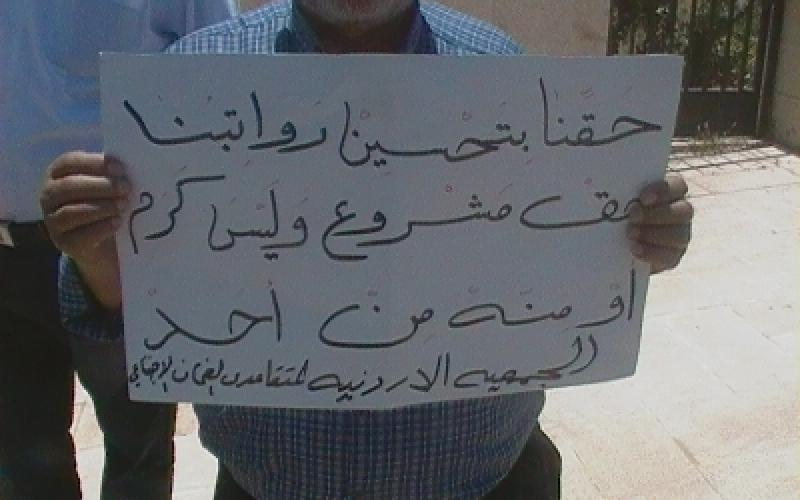 حَقّنا بتَحْسين رَواتبنا
حق مَشْروع وَليْسَ كَرم
أوْ منّة مِنْ أحَدْ
الجمعيه الاردنيه لمتقاعدي الضمان الاجتماعي